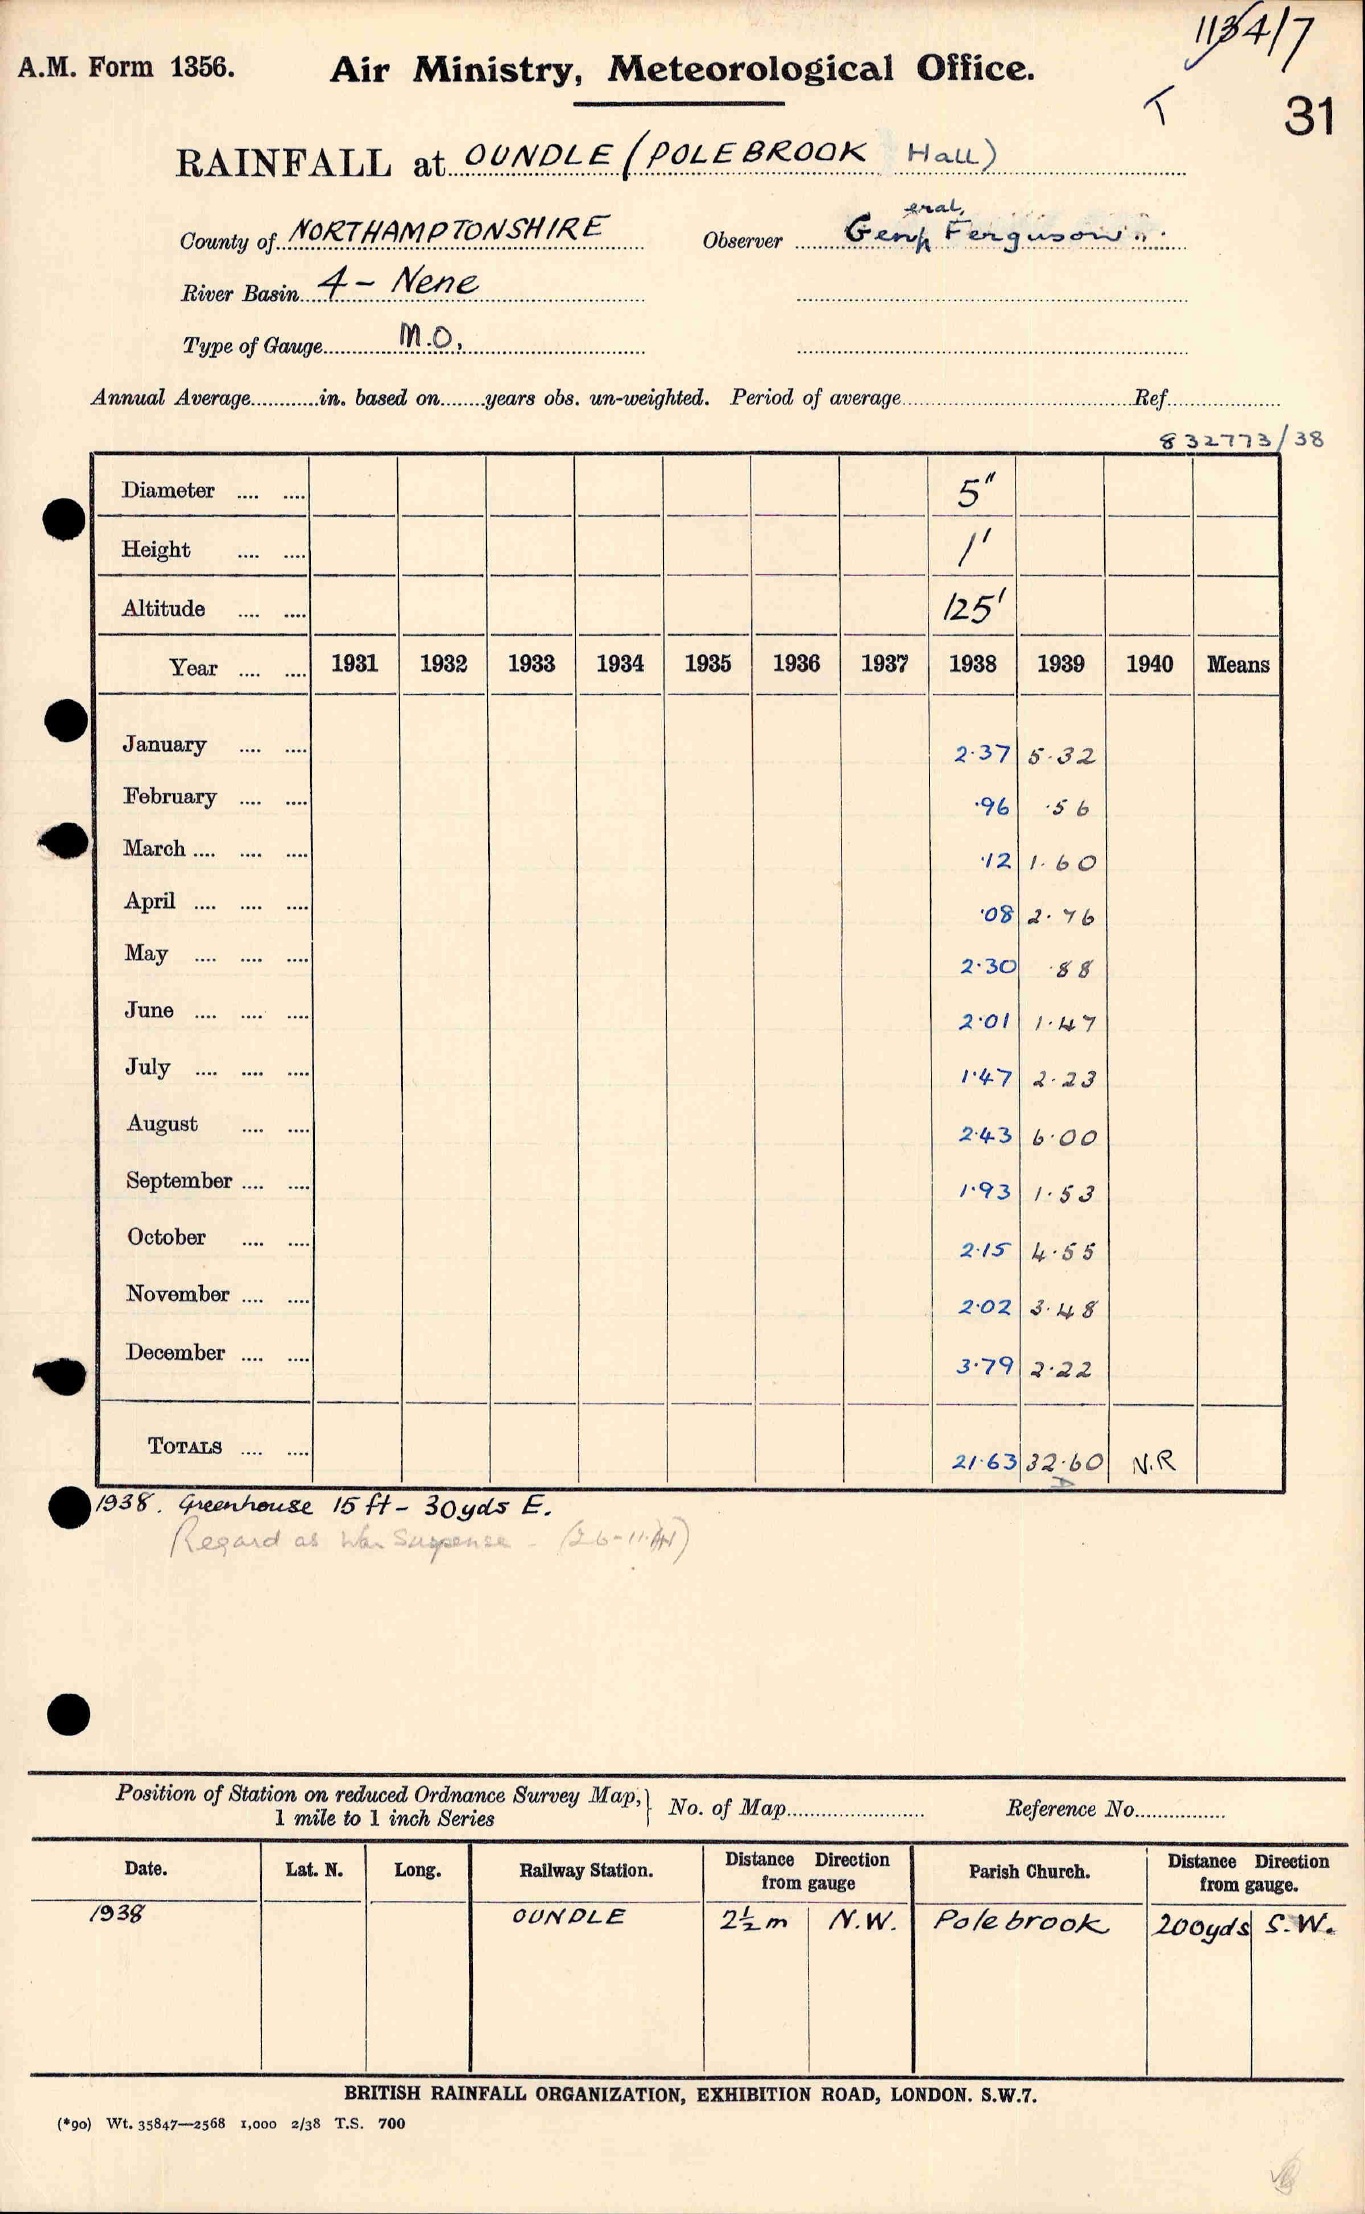 1134/7
A.M. Form 1356. Air Ministry, Meteorological Office.
T 31
RAINFALL at OUNDLE (POLEBROOK Hall)
County of NORTHAMPTONSHIRE Observer General Ferguson
River Basin 4 - Nene
Type of Gauge M.O.
Annual Average............in. based on.......years obs. un-weighted. Period of average.......... Ref..........
832773/38
Diameter .... .... 5"
Height .... .... 1'
Altitude .... .... 125'
Year .... .... 1931 1932 1933 1934 1935 1936 1937 1938 1939 1940 Means
January .... .... 2·37 5·32
February .... .... ·96 ·56
March .... .... .... ·12 1·60
April .... .... .... ·08 2·76
May .... .... .... 2·30 ·88
June .... .... .... 2·01 1·47
July .... .... .... 1·47 2·23
August .... .... 2·43 6·00
September .... .... 1·93 1·53
October .... .... 2·15 4·55
November .... .... 2·02 3·48
December .... .... 3·79 2·22
TOTALS .... .... 21·63 32·60 N.R
1938. Greenhouse 15 ft - 30yds E.
Regard as War Suspense -
Position of Station on reduced Ordnance Survey Map, } No. of Map.......... Reference No..........
1 mile to 1 inch Series
Date. Lat. N. Long. Railway Station. Distance Direction from gauge Parish Church. Distance Direction from gauge.
1938 OUNDLE 2½ m N.W. Polebrook 200yds S.W.
BRITISH RAINFALL ORGANIZATION, EXHIBITION ROAD, LONDON. S.W.7.
(*90) Wt. 35847—2568 1,000 2/38 T.S. 700